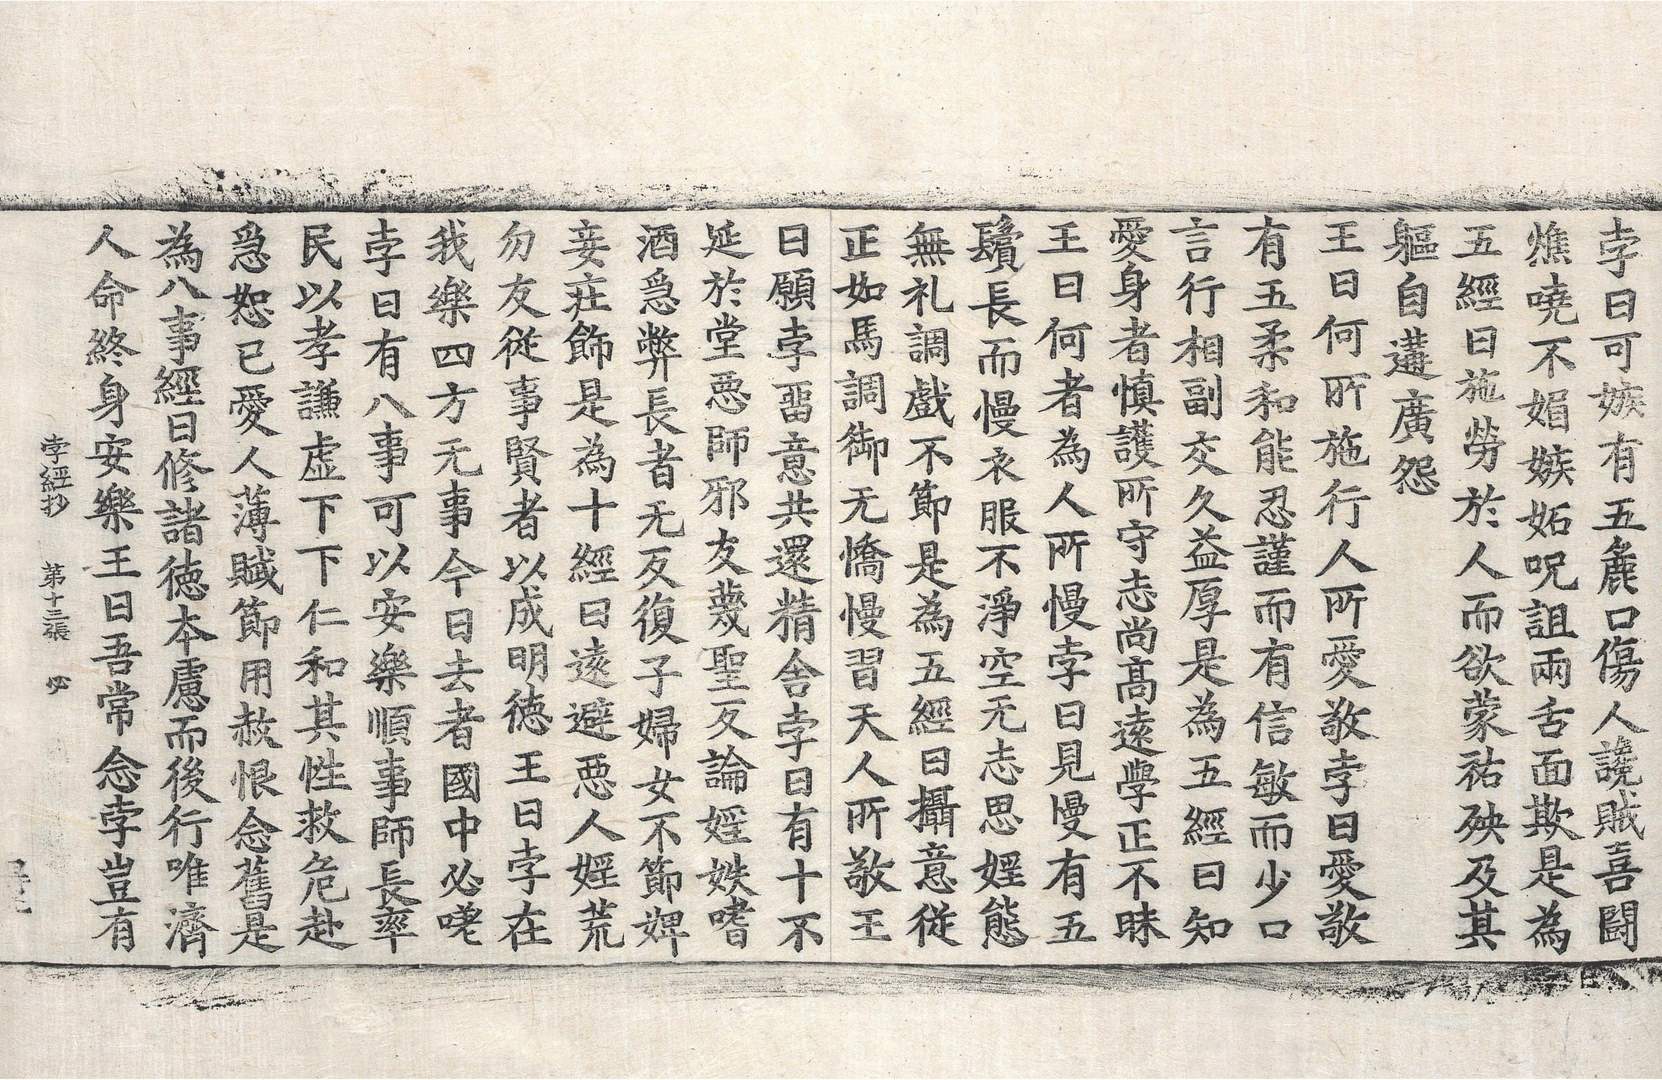 孛曰可嫉有五麁口傷人讒賊喜鬪
燋嘵不媚嫉妬呪詛兩舌面欺是為
五經曰施勞於人而欲蒙祐殃及其
軀自遘廣怨
王曰何所施行人所愛敬孛曰愛敬
有五柔和能忍謹而有信敏而少口
言行相副交久益厚是為五經曰知
愛身者慎護所守志尚高遠學正不昧
王曰何者為人所慢孛曰見慢有五
鬚長而慢衣服不淨空无志思婬態
無礼調戲不節是為五經曰攝意從
正如馬調御无憍慢習天人所敬王
曰願孛畱意共還精舍孛曰有十不
延於堂惡師邪友蔑聖反論婬妷嗜
酒急弊長者无反復子婦女不節婢
妾莊飾是為十經曰遠避惡人婬荒
勿友從事賢者以成明德王曰孛在
我樂四方无事今日去者國中必嗟
孛曰有八事可以安樂順事師長率
民以孝謙虛下下仁和其性救危赴
急恕已愛人薄賦節用赦恨念舊是
為八事經曰修諸德本慮而後行唯濟
人命終身安樂王曰吾常念孛豈有
孛經抄 第十三張 必